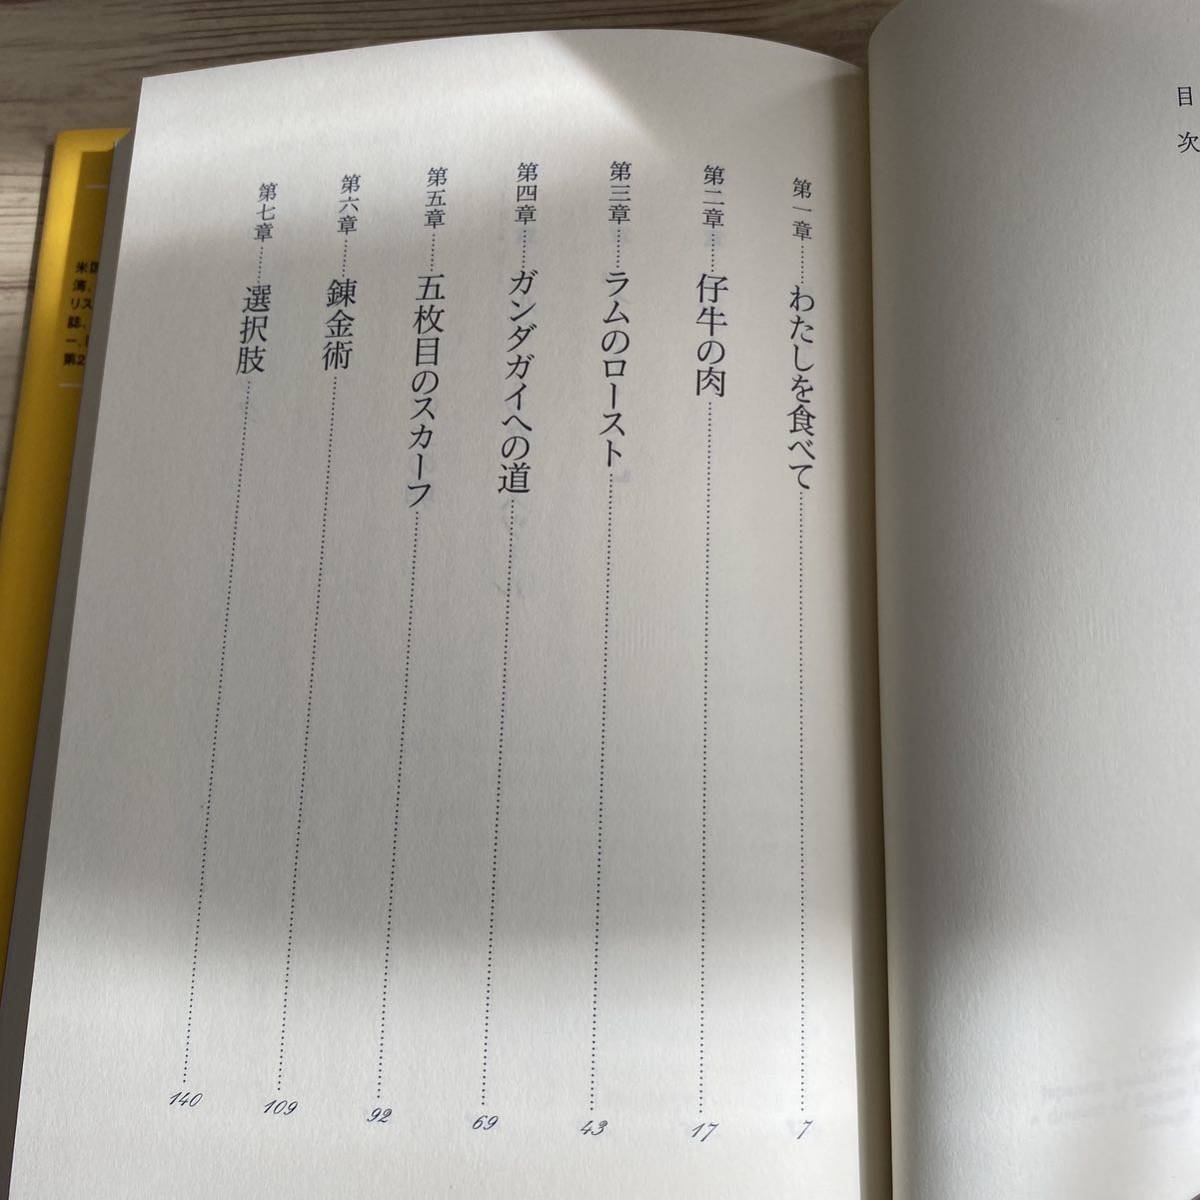 目次
第一章……わたしを食べて……7
第二章……仔牛の肉……17
第三章……ラムのロースト……43
第四章……ガンダガイへの道……69
第五章……五枚目のスカーフ……92
第六章……錬金術……109
第七章……選択肢……140
米国
薄、
リス
誌、
ー、
第2